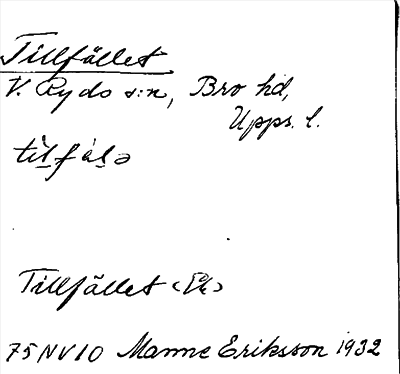 Tillfället
V. Ryds s:n, Bro hd,
Upps. l.
tìlfálə
Tillfället
75NV10 Manne Eriksson 1932